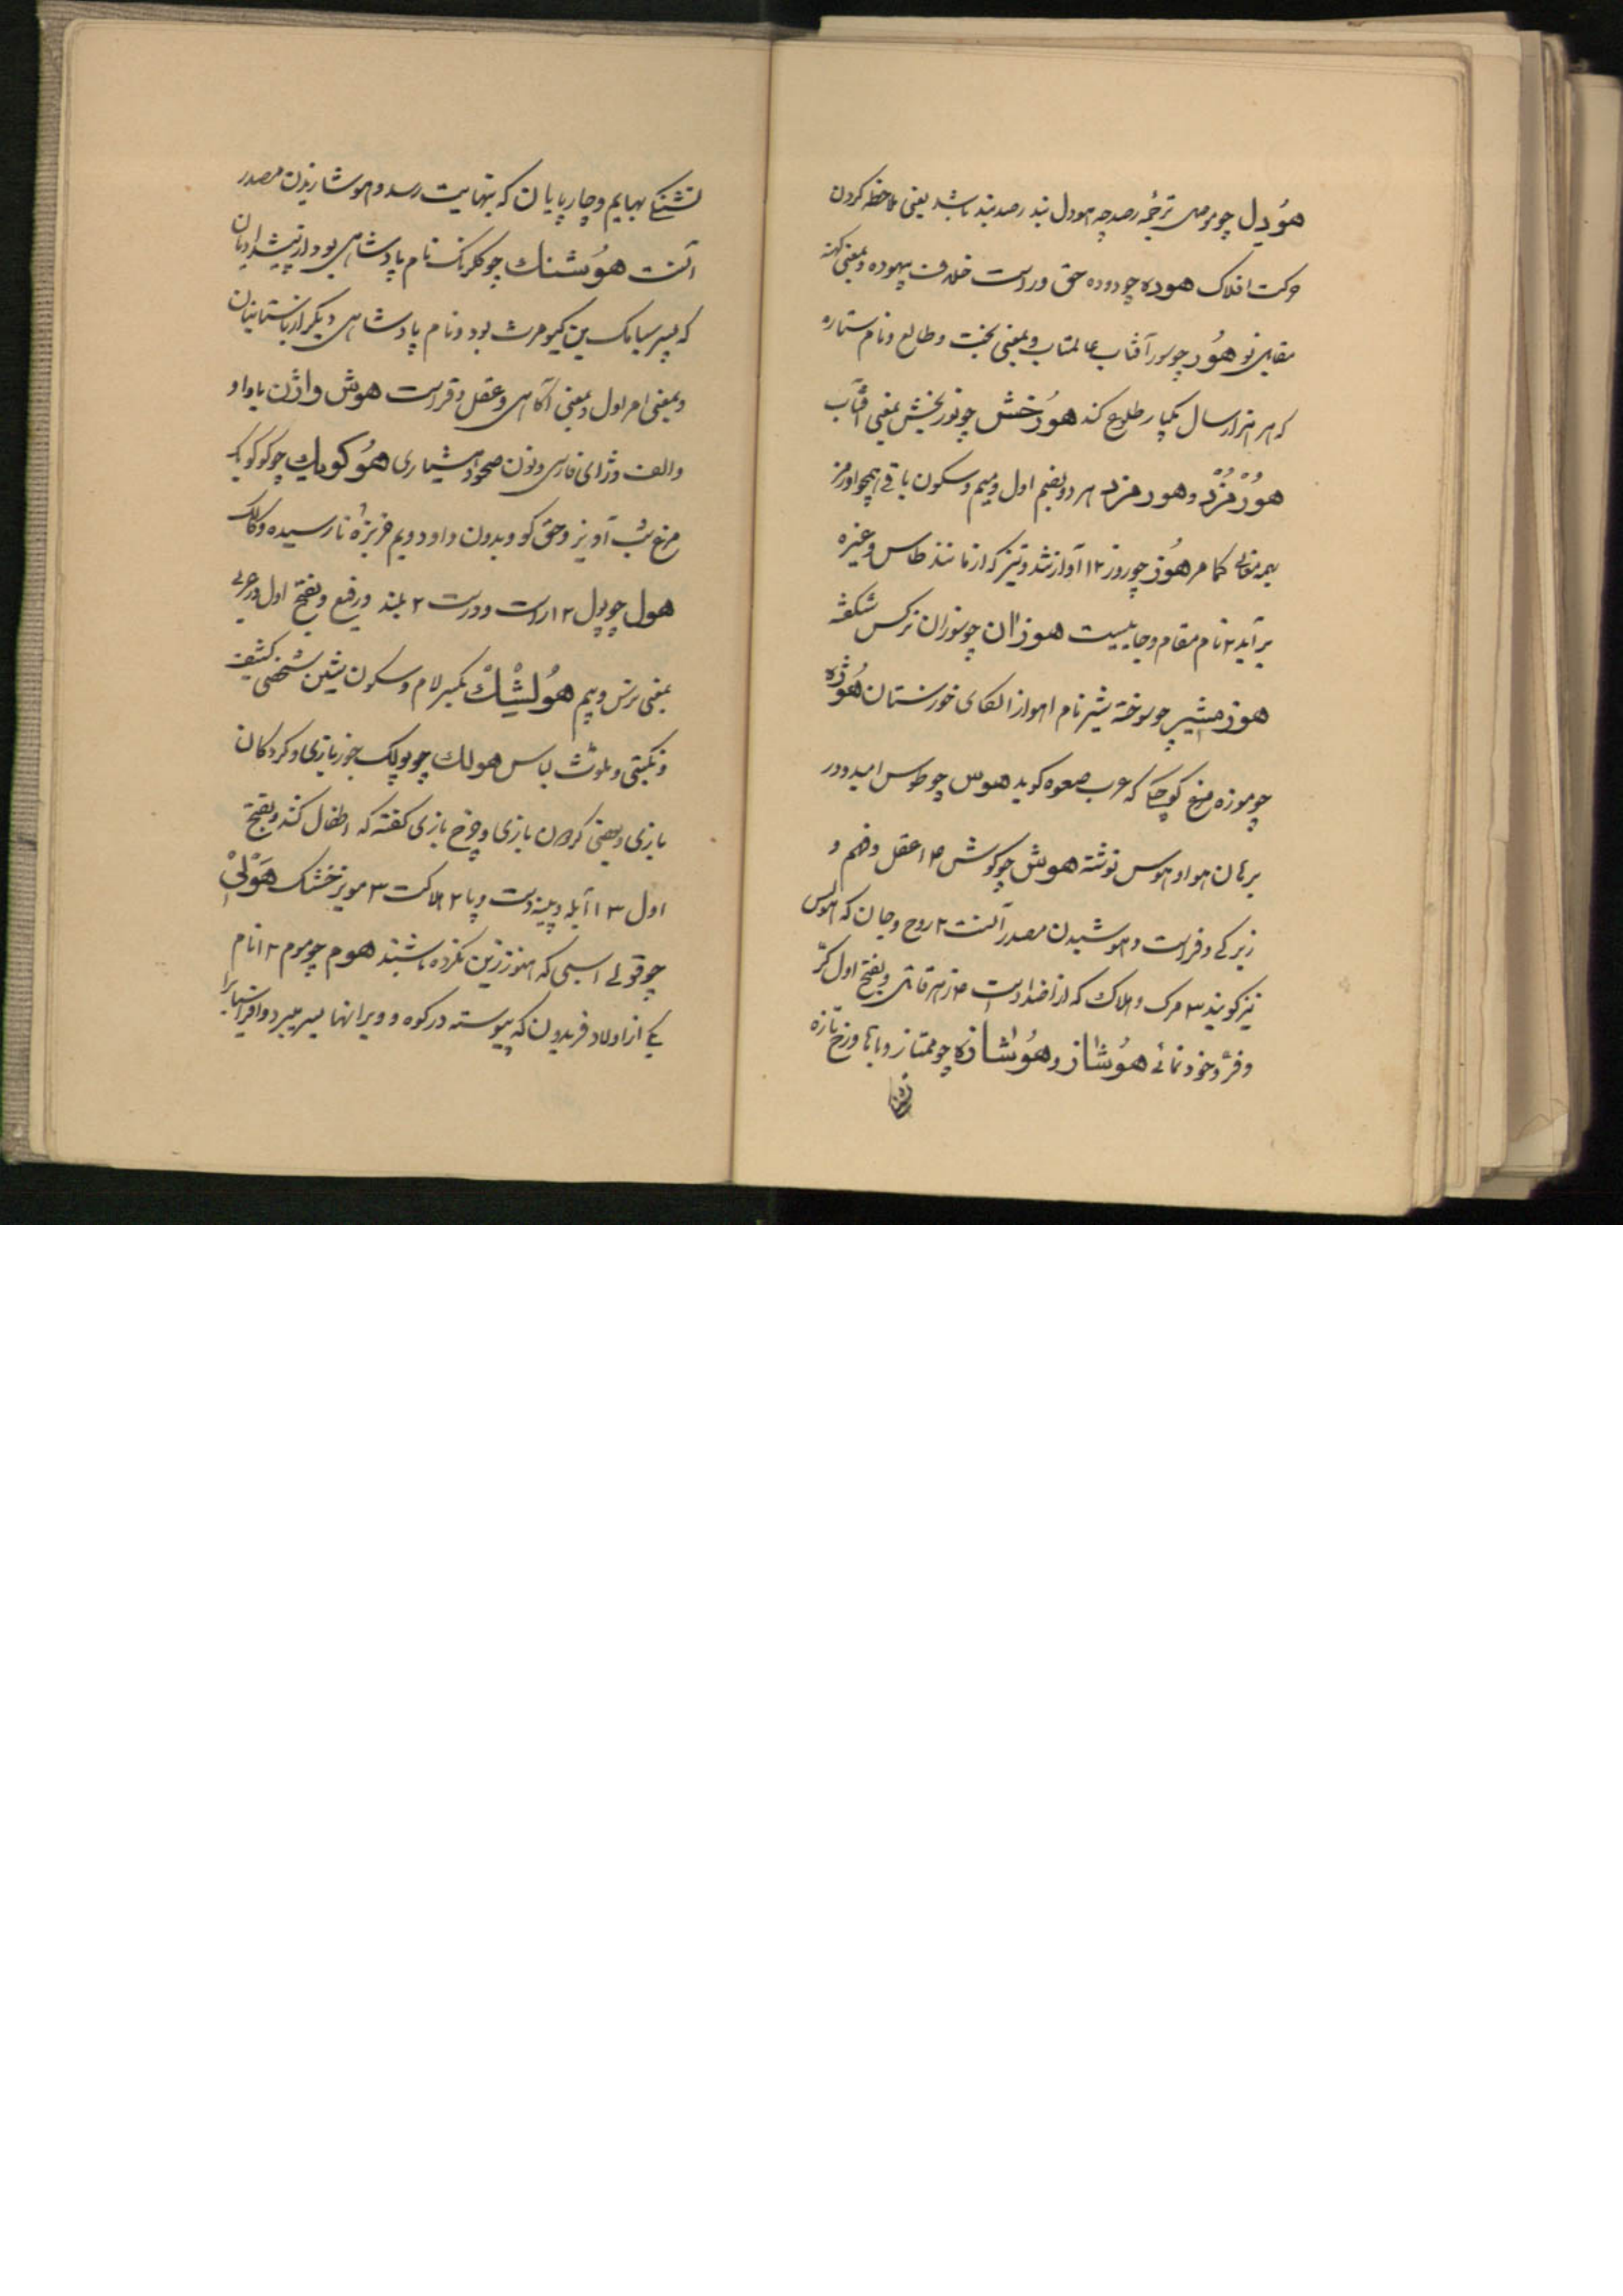 هوُدِل چو موصل ترجمهٔ رصد چه هودل بند رصد بند باشد یعنی ملاحظه کردن
حرکت افلاک هوده چو دوده حق و راست خلاف بیهوده و بمعنی کهنه
مقابل نو هوُر چو سور آفتاب عالمتاب و بمعنی بخت و طالع و نام ستاره
که هر هزار سال یکبار طلوع کند هوُرخش چو نوربخش بمعنی آفتاب
هوُرْمُزْد و هورمزد هر دو بضم اول و میم و سکون باقی همچو اورمز
بهمه معانی کمامر هوُز چو روز ۱۲ آواز تند و تیز که از مانند طاس و غیره
برآید ۲ نام مقام و جاییست هوزان چو سوزان نرکس شکفته
هوزمشیر چو سوخته شیر نام اهواز الکای خوزستان هوُژه
چو موزه مرغ کوچکی که عرب صعوه کوید هوس چو طوس امید و در
برهان هوا و هوس نوشته هوش چو کوش ۴ ۱ عقل و فهم و
زیرکی و فراست و هوشیدن مصدر آنست ۲ روح و جان که هوس
نیز کویند ۳ مرک و هلاک که از اضداد است ۴ زهر قاتل و بفتح اول کرّ
و فرّ و خود نمائی هوُشاز و هوُشازه چو ممتاز و با ها و زخ تازه
تشنکی بهایم و چارپایان که بنهایت رسد و هوشازیدن مصدر
آنست هوُشنك چو کلرنک نام پادشاهی بود از پیشدادیان
که پسر سیامک بن کیومرث بود و نام پادشاهی دیکر از باستانیان
و بمعنی امر اول و بمعنی آکاهی و عقل و فراست هوش واژن با واو
والف و ژای فارسی و نون صحو و هشیاری هوُکویك چو کوکویک
مرغ شب آویز و حق کو و بدون واو دویم خربزهٔ نارسیده و کالک
هول چو پول ۱۲ راست و درست ۲ بلند و رفیع و بفتح اول در عربی
بمعنی ترس و بیم هوُلِشْكْ بکسر لام و سکون شین شخصی کثیف
و نکبتی و ملوث لباس هولك چو پولک جوزبازی و کردکان
بازی و بعضی کردن بازی و چرخ بازی کفته که اطفال کنند و بفتح
اول ۱۳ آبله و پینه دست و پا ۲ هلاکت ۳ مویز خشک هَوْلیْ
چو قولی اسبی که هنوز زین نکرده باشند هوم چو موم ۱۲ نام
یکی از اولاد فریدون که پیوسته در کوه و ویرانها بسر میبرد و افراسیابرا